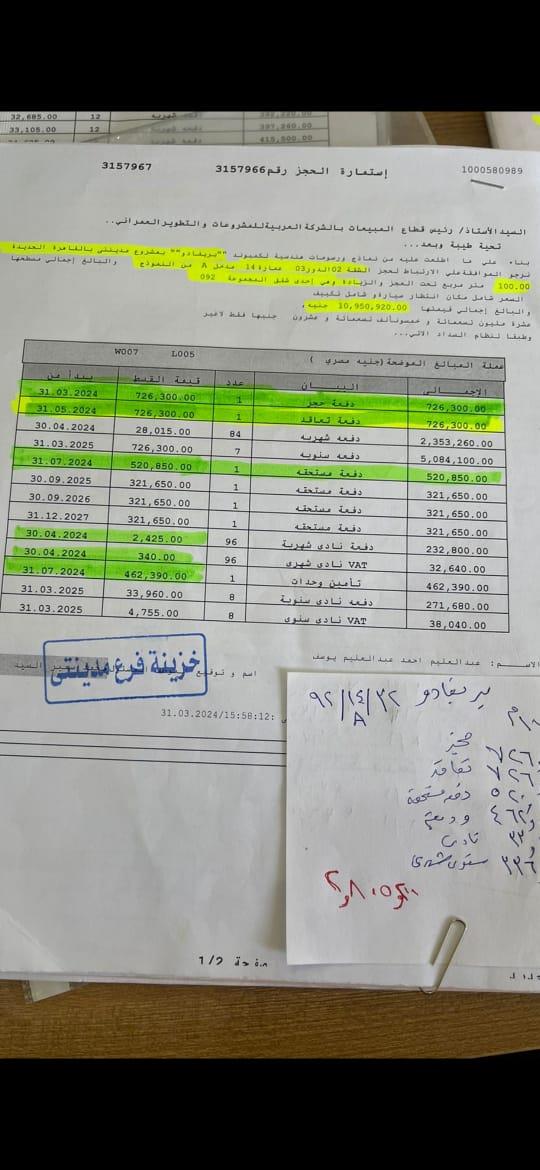 32,685.00 12 دفعة شهرية
33,105.00 12 دفعة شهرية 397,260.00
415,500.00
1000580989 إستمارة الحجز رقم 3157966 3157967
السيد الأستاذ/ رئيس قطاع المبيعات بالشركة العربية للمشروعات والتطوير العمراني..
تحية طيبة وبعد...
بناء على ما اطلعت عليه من نماذج ورسومات هندسية لكمبوند ""بريفادو"" بمشروع مدينتى بالقاهرة الجديدة
نرجو الموافقة على الارتباط لحجز الشقة 02 الدور 03 عمارة 14 مدخل A من النموذج والبالغ إجمالي مسطحها
100.00 متر مربع تحت العجز والزيادة وهي إحدى شقق المجموعة 092
السعر شامل مكان انتظار سيارة و شامل تكييف
والبالغ إجمالي قيمتها 10,950,920.00 جنيه.
عشرة مليون تسعمائة و خمسون ألف تسعمائة و عشرون جنيها فقط لاغير
وطبقا لنظام السداد الاتي...
عملة المبالغ الموضحة (جنيه مصري ) L005 W007
الإجمالي البيــــان عدد قيمة القسط يبدأ من
726,300.00 دفعة حجز 1 726,300.00 31.03.2024
726,300.00 دفعة تعاقد 1 726,300.00 31.05.2024
2,353,260.00 دفعه شهريه 84 28,015.00 30.04.2024
5,084,100.00 دفعه سنويه 7 726,300.00 31.03.2025
520,850.00 دفعة مستحقه 1 520,850.00 31.07.2024
321,650.00 دفعة مستحقه 1 321,650.00 30.09.2025
321,650.00 دفعة مستحقه 1 321,650.00 30.09.2026
321,650.00 دفعة مستحقه 1 321,650.00 31.12.2027
232,800.00 دفعة نادى شهرية 96 2,425.00 30.04.2024
32,640.00 VAT نادى شهرى 96 340.00 30.04.2024
462,390.00 تأمين وحدات 1 462,390.00 31.07.2024
271,680.00 دفعه نادى سنوية 8 33,960.00 31.03.2025
38,040.00 VAT نادى سنوى 8 4,755.00 31.03.2025
الاســـم : عبدالعليم احمد عبدالعليم يوسف
اسم و توقيع السيد
خزينة فرع مدينتى
31.03.2024/15:58:12:
بريفادو ٩٢/١٤/٣٢
A
حجز ٧٢٦
تعاقد ٧٢٦
دفعه مستحقة ٥٢٠
وديعة ٤٦٢
نادى
سنوى شهرى
صفحة 1/2